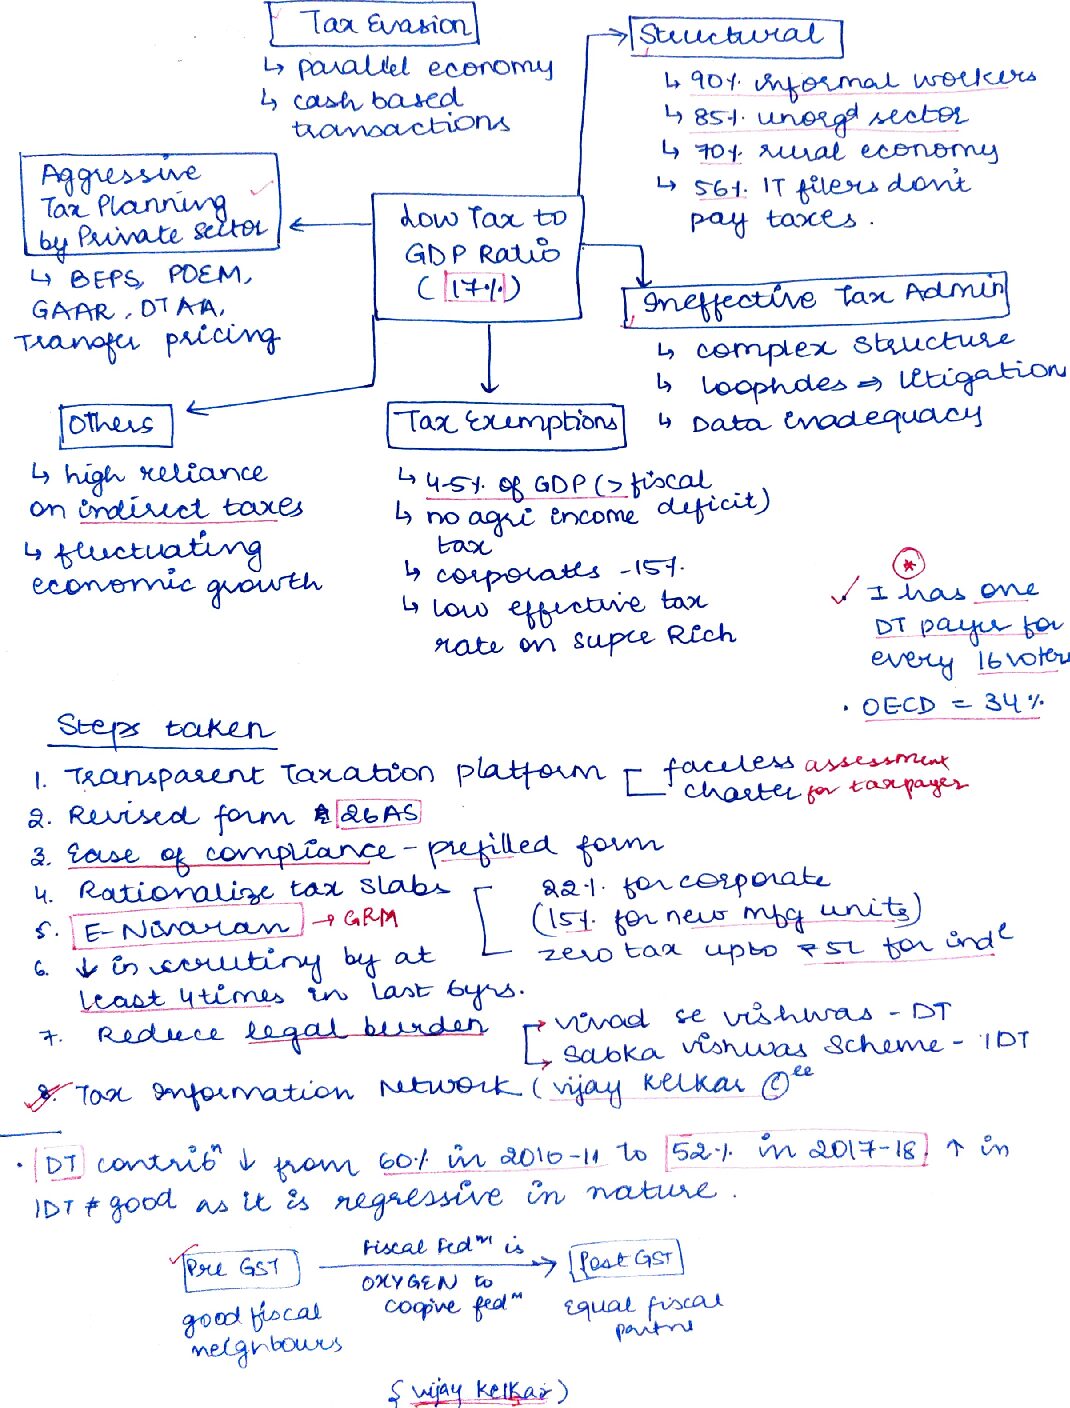 Tax Evasion
↳ parallel economy
↳ cash based
transactions
Structural
↳ 90% informal workers
↳ 85% unorgd sector
↳ 70% rural economy
↳ 56% IT filers don't
pay taxes.
Aggressive
Tax Planning
by Private Sector
↳ BEPS, POEM,
GAAR, DTAA,
Transfer pricing
Low Tax to
GDP Ratio
(17%)
Ineffective Tax Admin
↳ complex structure
↳ loopholes ⇒ litigation
↳ Data inadequacy
Others
↳ high reliance
on indirect taxes
↳ fluctuating
economic growth
Tax Exemptions
↳ 4-5% of GDP (> fiscal
deficit)
↳ no agri income
tax
↳ corporates -15%
↳ low effective tax
rate on supre Rich
*
✓ . I has one
DT payer for
every 16 voters
. OECD = 34%
Steps taken
1. Transparent Taxation platform faceless assessment
charter for taxpayer
2. Revised form 26AS
3. Ease of compliance - prefilled form
4. Rationalize tax slabs 22% for corporate
(15% for new mfg units)
zero tax upto ₹5L for indl
5. E-Nivaran → GRM
6. ↓ in scrutiny by at
least 4 times in last 6yrs.
7. Reduce legal burden → vivad se vishwas - DT
→ Sabka vishwas Scheme - IDT
8. Tax Information Network (vijay Kelkar ©ee
. DT contribn ↓ from 60% in 2010-11 to 52% in 2017-18. ↑ in
IDT ≠ good as it is regressive in nature.
Pre GST
Fiscal Fedm is
OXYGEN to
coopive fedm
Post GST
good fiscal
neighbours
Equal fiscal
partne
{ vijay Kelkar )